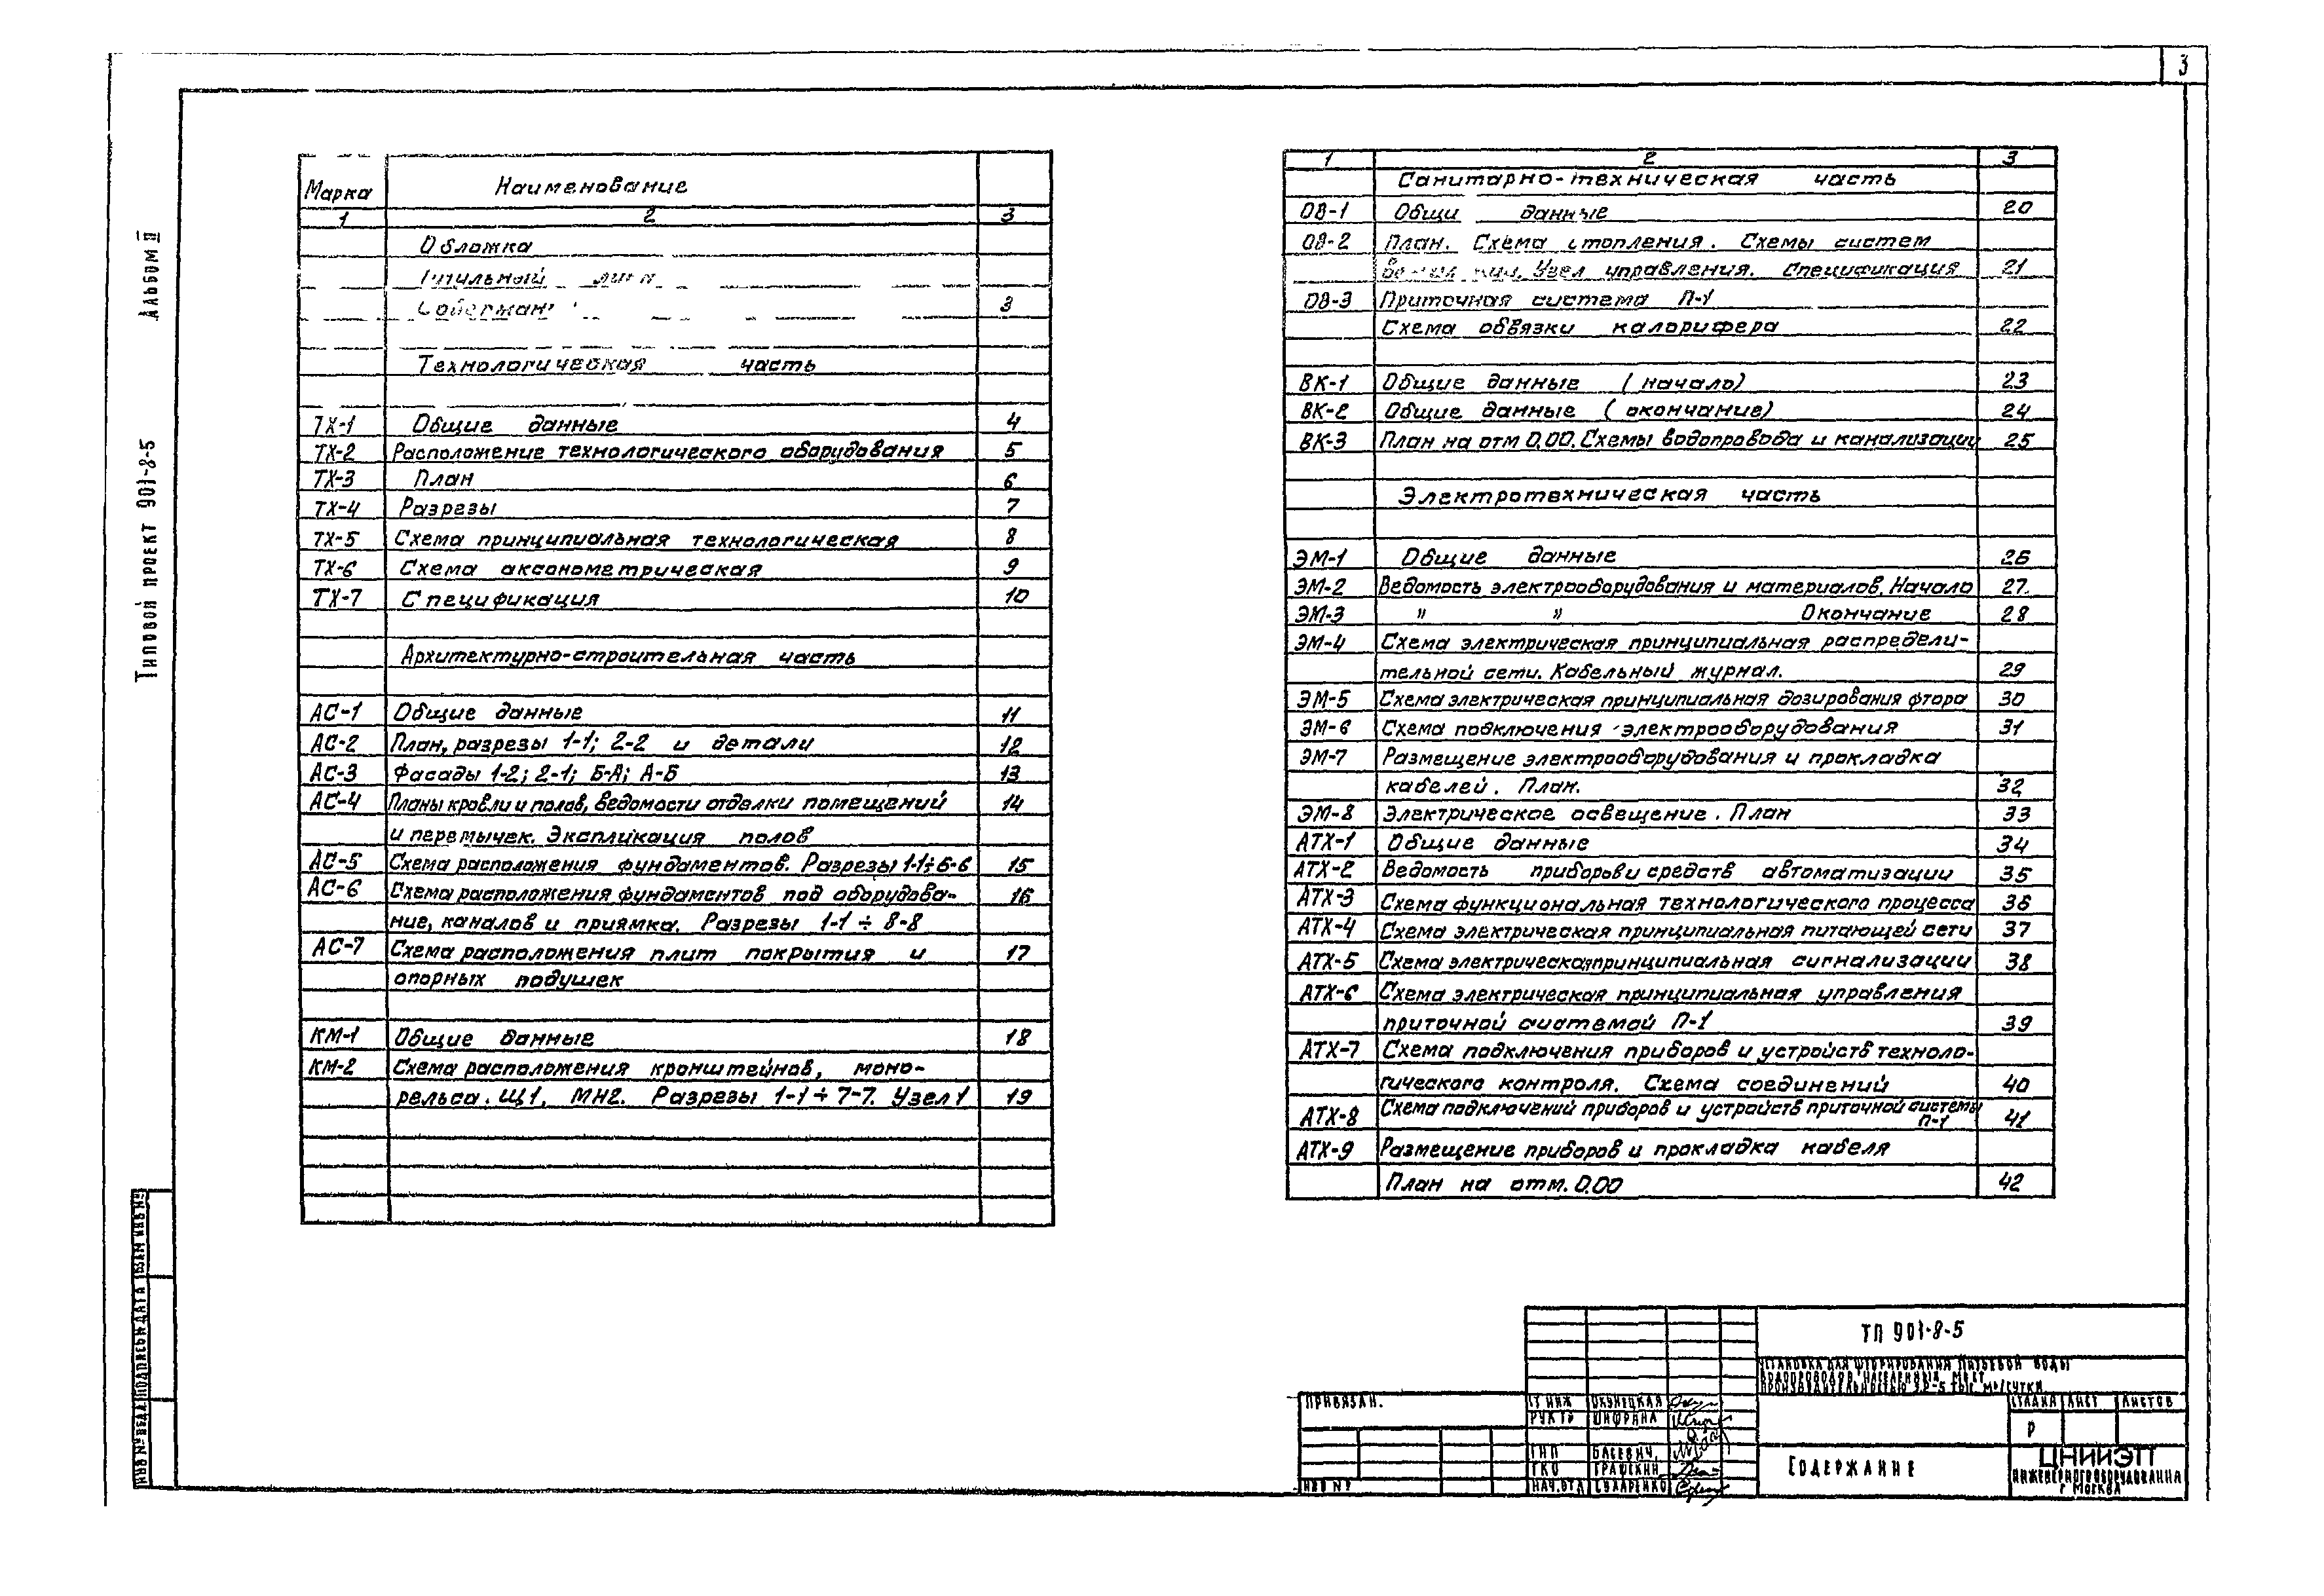 3
Альбом II
Типовой проект 901-8-5
Марка Наименование
1 2 3
Обложка
Содержан 3
Технологическая часть
ТХ-1 Общие данные 4
ТХ-2 Расположение технологического оборудования 5
ТХ-3 План 6
ТХ-4 Разрезы 7
ТХ-5 Схема принципиальная технологическая 8
ТХ-6 Схема аксонометрическая 9
ТХ-7 Спецификация 10
Архитектурно-строительная часть
АС-1 Общие данные 11
АС-2 План, разрезы 1-1; 2-2 и детали 12
АС-3 Фасады 1-2; 2-1; Б-А; А-Б 13
АС-4 Планы кровли и полов, ведомости отделки помещений 14
и перемычек. Экспликация полов
АС-5 Схема расположения фундаментов. Разрезы 1-1÷6-6 15
АС-6 Схема расположения фундаментов под оборудова- 16
ние, каналов и приямка. Разрезы 1-1 ÷ 8-8
АС-7 Схема расположения плит покрытия и 17
опорных подушек
КМ-1 Общие данные 18
КМ-2 Схема расположения кронштейнов, моно-
рельса. Щ1, МН2. Разрезы 1-1 ÷ 7-7. Узел 1 19
1 2 3
Санитарно-техническая часть
ОВ-1 Общи данные 20
ОВ-2 План. Схема отопления. Схемы систем
Узел управления. Спецификация 21
ОВ-3 Приточная система П-1
Схема обвязки калорифера 22
ВК-1 Общие данные (начало) 23
ВК-2 Общие данные (окончание) 24
ВК-3 План на отм 0,00. Схемы водопровода и канализации 25
Электротехническая часть
ЭМ-1 Общие данные 26
ЭМ-2 Ведомость электрооборудования и материалов. Начало 27
ЭМ-3 " " Окончание 28
ЭМ-4 Схема электрическая принципиальная распредели-
тельной сети. Кабельный журнал. 29
ЭМ-5 Схема электрическая принципиальная дозирования фтора 30
ЭМ-6 Схема подключения электрооборудования 31
ЭМ-7 Размещение электрооборудования и прокладка
кабелей. План. 32
ЭМ-8 Электрическое освещение. План 33
АТХ-1 Общие данные 34
АТХ-2 Ведомость приборов и средств автоматизации 35
АТХ-3 Схема функциональная технологического процесса 36
АТХ-4 Схема электрическая принципиальная питающей сети 37
АТХ-5 Схема электрическая принципиальная сигнализации 38
АТХ-6 Схема электрическая принципиальная управления
приточной системой П-1 39
АТХ-7 Схема подключения приборов и устройств техноло-
гического контроля. Схема соединений 40
АТХ-8 Схема подключений приборов и устройств приточной системы
П-1 41
АТХ-9 Размещение приборов и прокладка кабеля
План на отм. 0.00 42
ИНВ № ПОДЛ. ПОДПИСЬ И ДАТА ВЗАМ ИНВ №
ТП 901-8-5
УСТАНОВКА ДЛЯ ФТОРИРОВАНИЯ ПИТЬЕВОЙ ВОДЫ
ВОДОПРОВОДОВ НАСЕЛЕННЫХ МЕСТ
ПРИВЯЗАН.
ИНВ №
РУК ГР ШИФРИНА
ГИП БАСЕВИЧ
НАЧ.ОТД
СТАДИЯ ЛИСТ ЛИСТОВ
Р
СОДЕРЖАНИЕ
ЦНИИЭП
ИНЖЕНЕРНОГО ОБОРУДОВАНИЯ
г МОСКВА